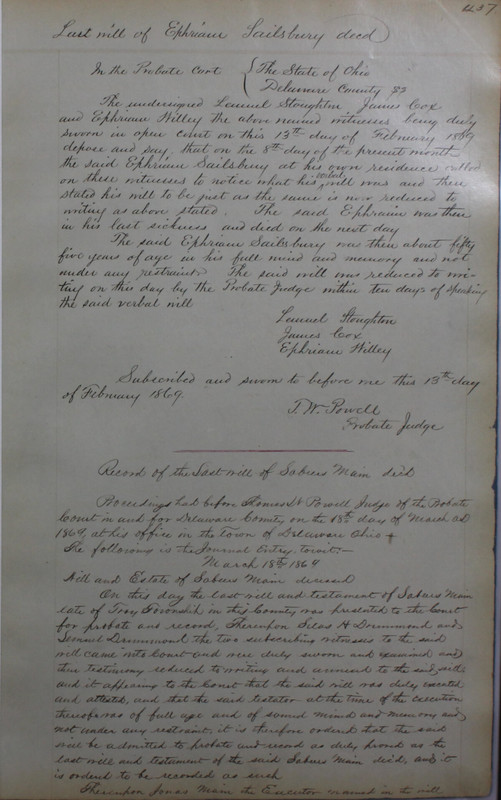 437
Last will of Ephriam Sailsbury decd
In the Probate Cort { The State of Ohio
Delaware County ss
The undersigned Lemuel Stoughton James Cox
and Ephriam Willey the above named witnesses being duly
sworn in open court on this 13th day of February 1869
depose and say, that on the 8th day of the present month
the said Ephriam Sailsbury at his own residence called
on these witnesses to notice what his verbal will was and then
stated his will to be just as the same is now reduced to
writing as above stated. The said Ephriam was then
in his last sickness and died on the next day
The said Ephriam Sailsbury was then about fifty
five years of age in his full mind and memory and not
under any restraint. The said will was reduced to wri-
ting on this day by the Probate Judge within ten days of speaking
the said verbal will
Lemuel Stoughton
James Cox
Ephriam Willey
Subscribed and sworn to before me this 13th day
of February 1869.
T. W. Powell
Probate Judge
Record of the Last will of Sabeers Main decd
Proceedings had before Thomas W Powell Judge of the Probate
Court in and for Delaware County on the 18th day of March AD
1869, at his office in the Town of Delaware Ohio
The following is the Journal Entry towit:-
March 18th 1869
Will and Estate of Sabeers Main deceased
On this day the last will and testament of Sabeers Main
late of Troy Township in this County was presented to the Court
for probate and record, Thereupon Silas H Drummond and
Samuel Drummond the two subscribing witnesses to the said
will came into Court and were duly sworn and examined and
their testimony reduced to writing and annexed to the said will
and it appearing to the Court that the said will was duly executed
and attested, and that the said testator at the time of the execution
thereof was of full age and of sound mind and memory and
not under any restraint, it is therefore ordered that the said
will be admitted to probate and record as duly proved as the
last will and testament of the said Sabeers Main decd, and it
is ordered to be recorded as such
Thereupon Jonas Main the Executor named in the will